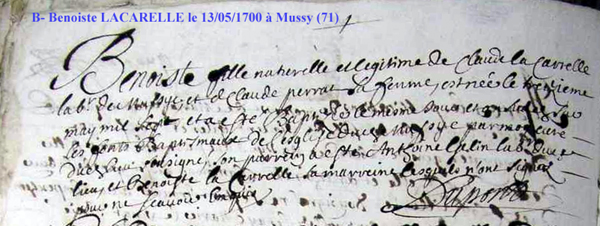 B- Benoiste LACARELLE le 13/05/1700 à Mussy (71)
Benoiste fille naturelle et legitime de Claude la Carrelle
lab.r de Mussye et de Claude perrat sa femme, est née le treizieme
may mil sept et a esté Baptisée le mesme jour et an
les fonts Baptismaux de l'esglise de Mussye par moy curé
dudit lieu soubsigné, son parrein a esté Antoine lab.r dudit
lieu, et Benoiste la Carrelle sa marreine lesquels n'ont signé
pour ne scavoir enquis